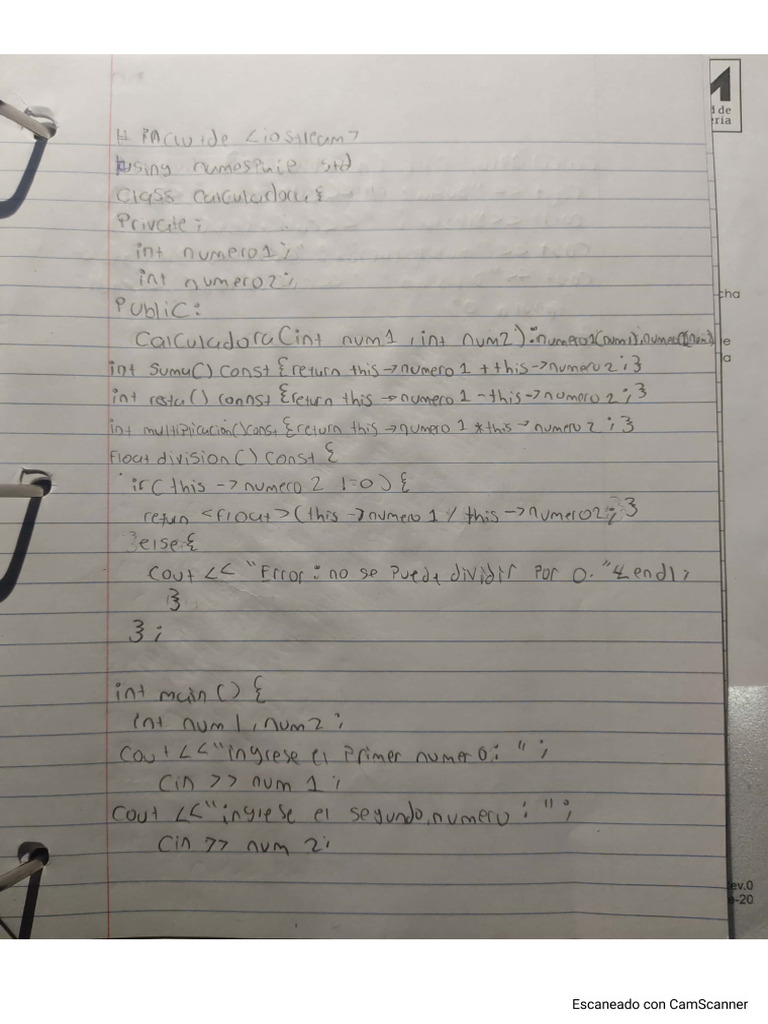 # include <iostream>
using namespace std
class calculadora {
Private:
int numero1;
int numero2;
Public:
Calculadora(int num1, int num2):numero1(num1),numero2(num2)
int suma() const {return this->numero1 + this->numero2;}
int resta() connst {return this->numero1 - this->numero2;}
int multiplicación() const {return this->numero1 * this->numero2;}
float division() const {
if( this -> numero 2 !=0) {
return <float>(this ->numero1 / this->numero2; }
}else{
cout << "Error: no se puede dividir por 0." << endl;
}
};
int main() {
int num1, num2;
Cout <<"ingrese el primer numero: ";
Cin >> num 1;
Cout <<"ingrese el segundo numero: ";
Cin >> num 2;
d de
ería
cha
e
a
ev.0
-20
Escaneado con CamScanner